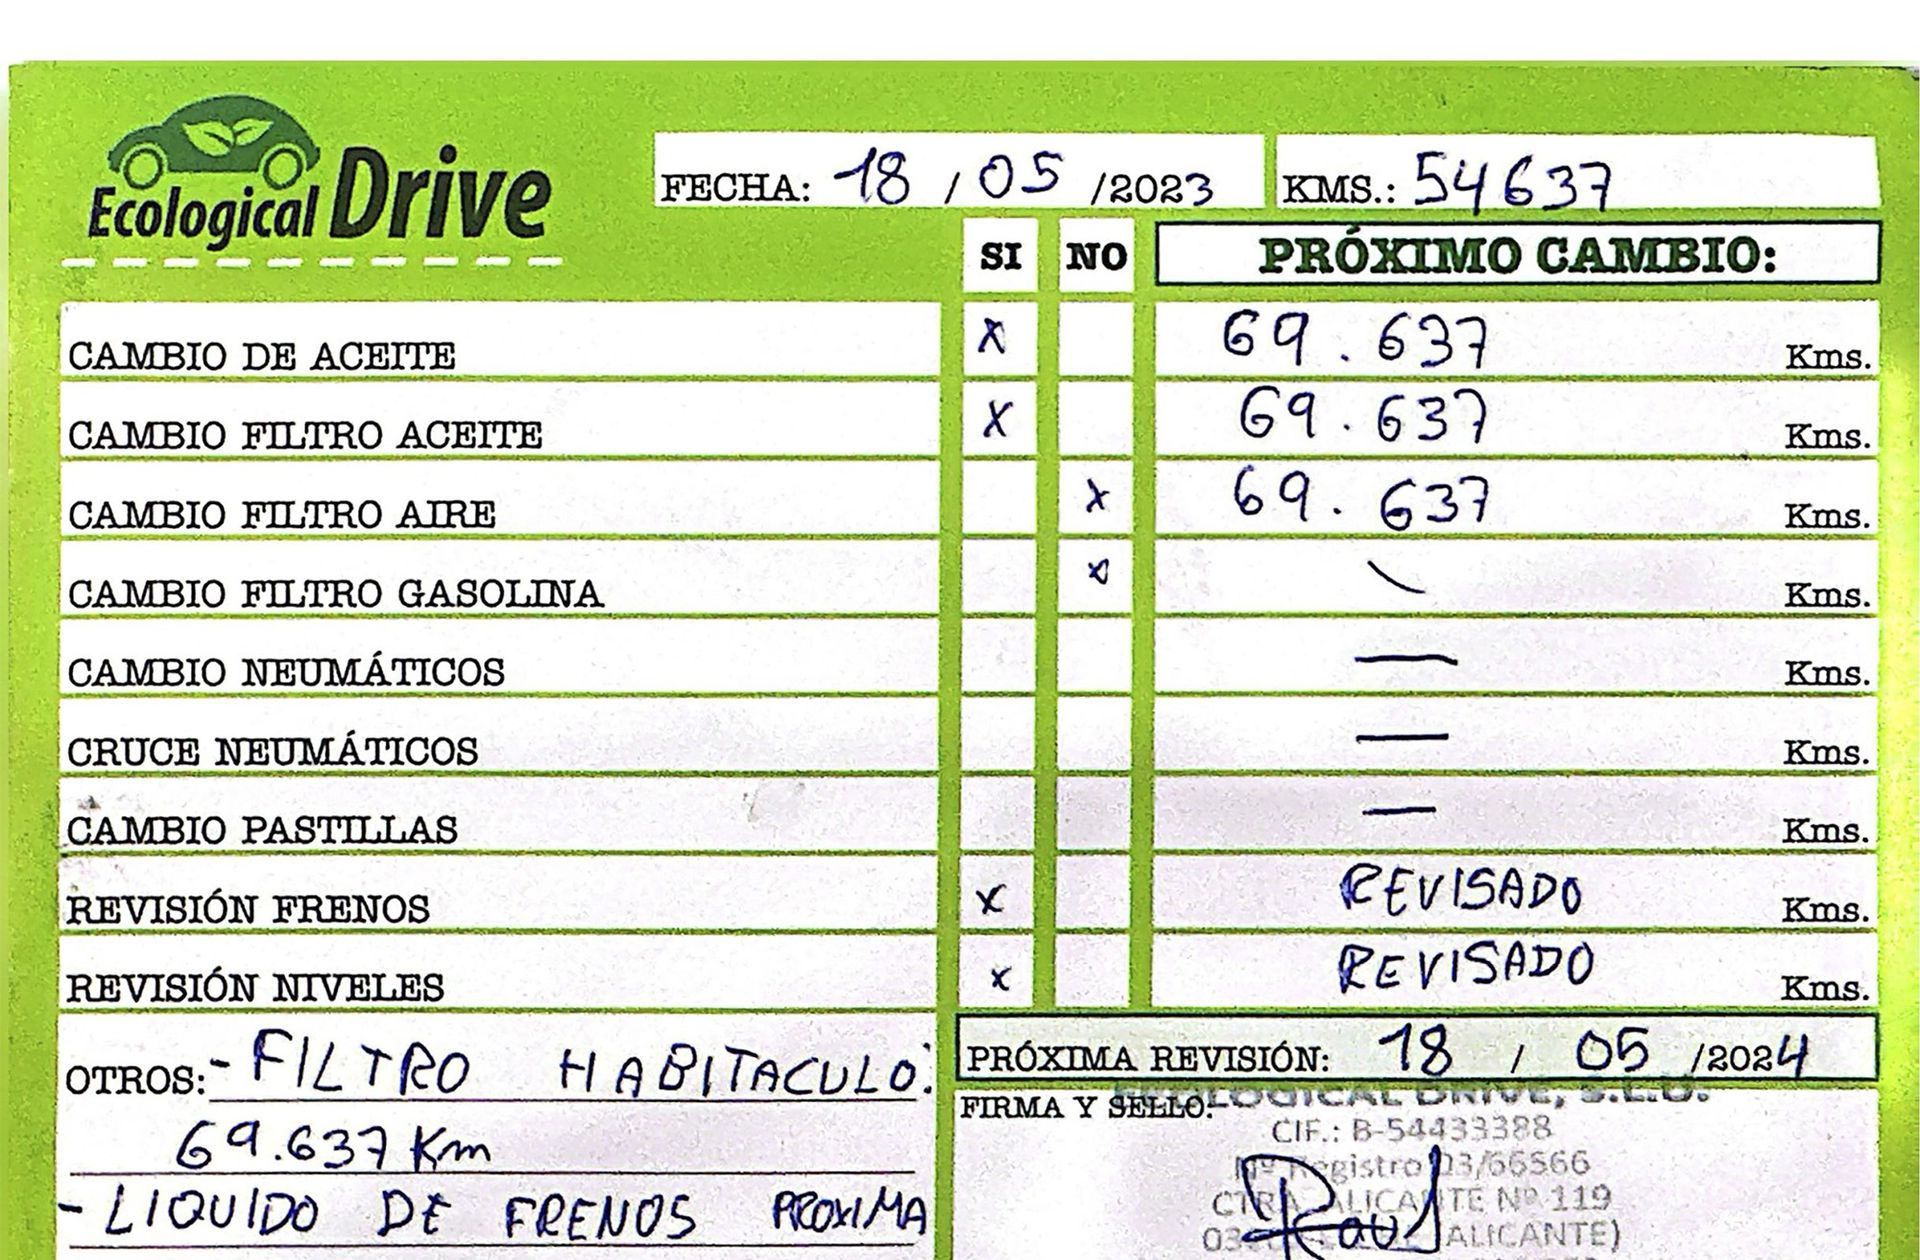 Ecological Drive
FECHA: 18 / 05 /2023 KMS.: 54637
SI NO PRÓXIMO CAMBIO:
CAMBIO DE ACEITE X 69.637 Kms.
CAMBIO FILTRO ACEITE X 69.637 Kms.
CAMBIO FILTRO AIRE X 69.637 Kms.
CAMBIO FILTRO GASOLINA X Kms.
CAMBIO NEUMÁTICOS — Kms.
CRUCE NEUMÁTICOS — Kms.
CAMBIO PASTILLAS — Kms.
REVISIÓN FRENOS X REVISADO Kms.
REVISIÓN NIVELES X REVISADO Kms.
OTROS: - FILTRO HABITACULO:
69.637 Km
- LIQUIDO DE FRENOS PROXIMA
PRÓXIMA REVISIÓN: 18 / 05 /2024
FIRMA Y SELLO:
ECOLOGICAL DRIVE, S.L.U.
CIF.: B-54433388
Nº Registro 03/66566
CTRA. ALICANTE Nº 119
(ALICANTE)
Raul